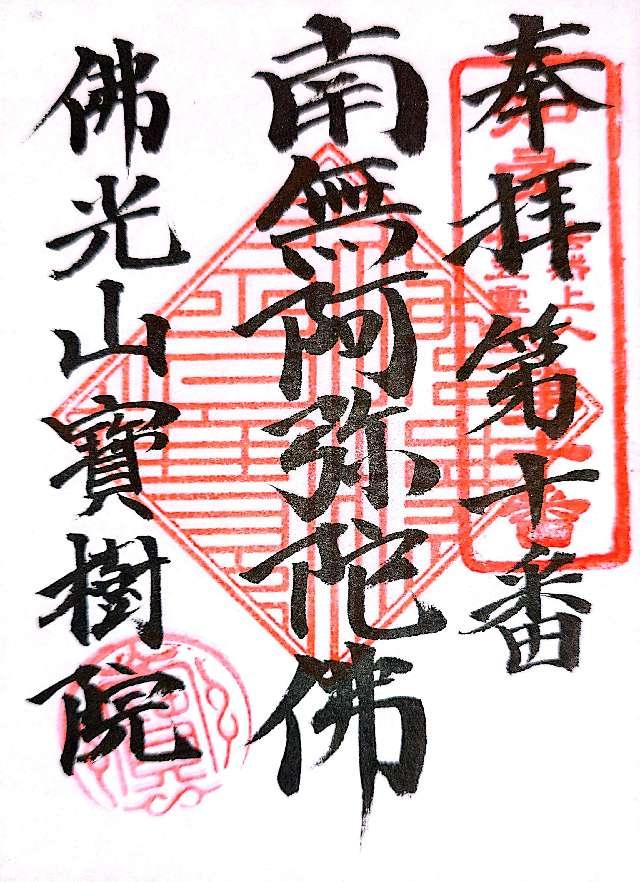 奉拝第十番
南無阿弥陀佛
佛光山寶樹院